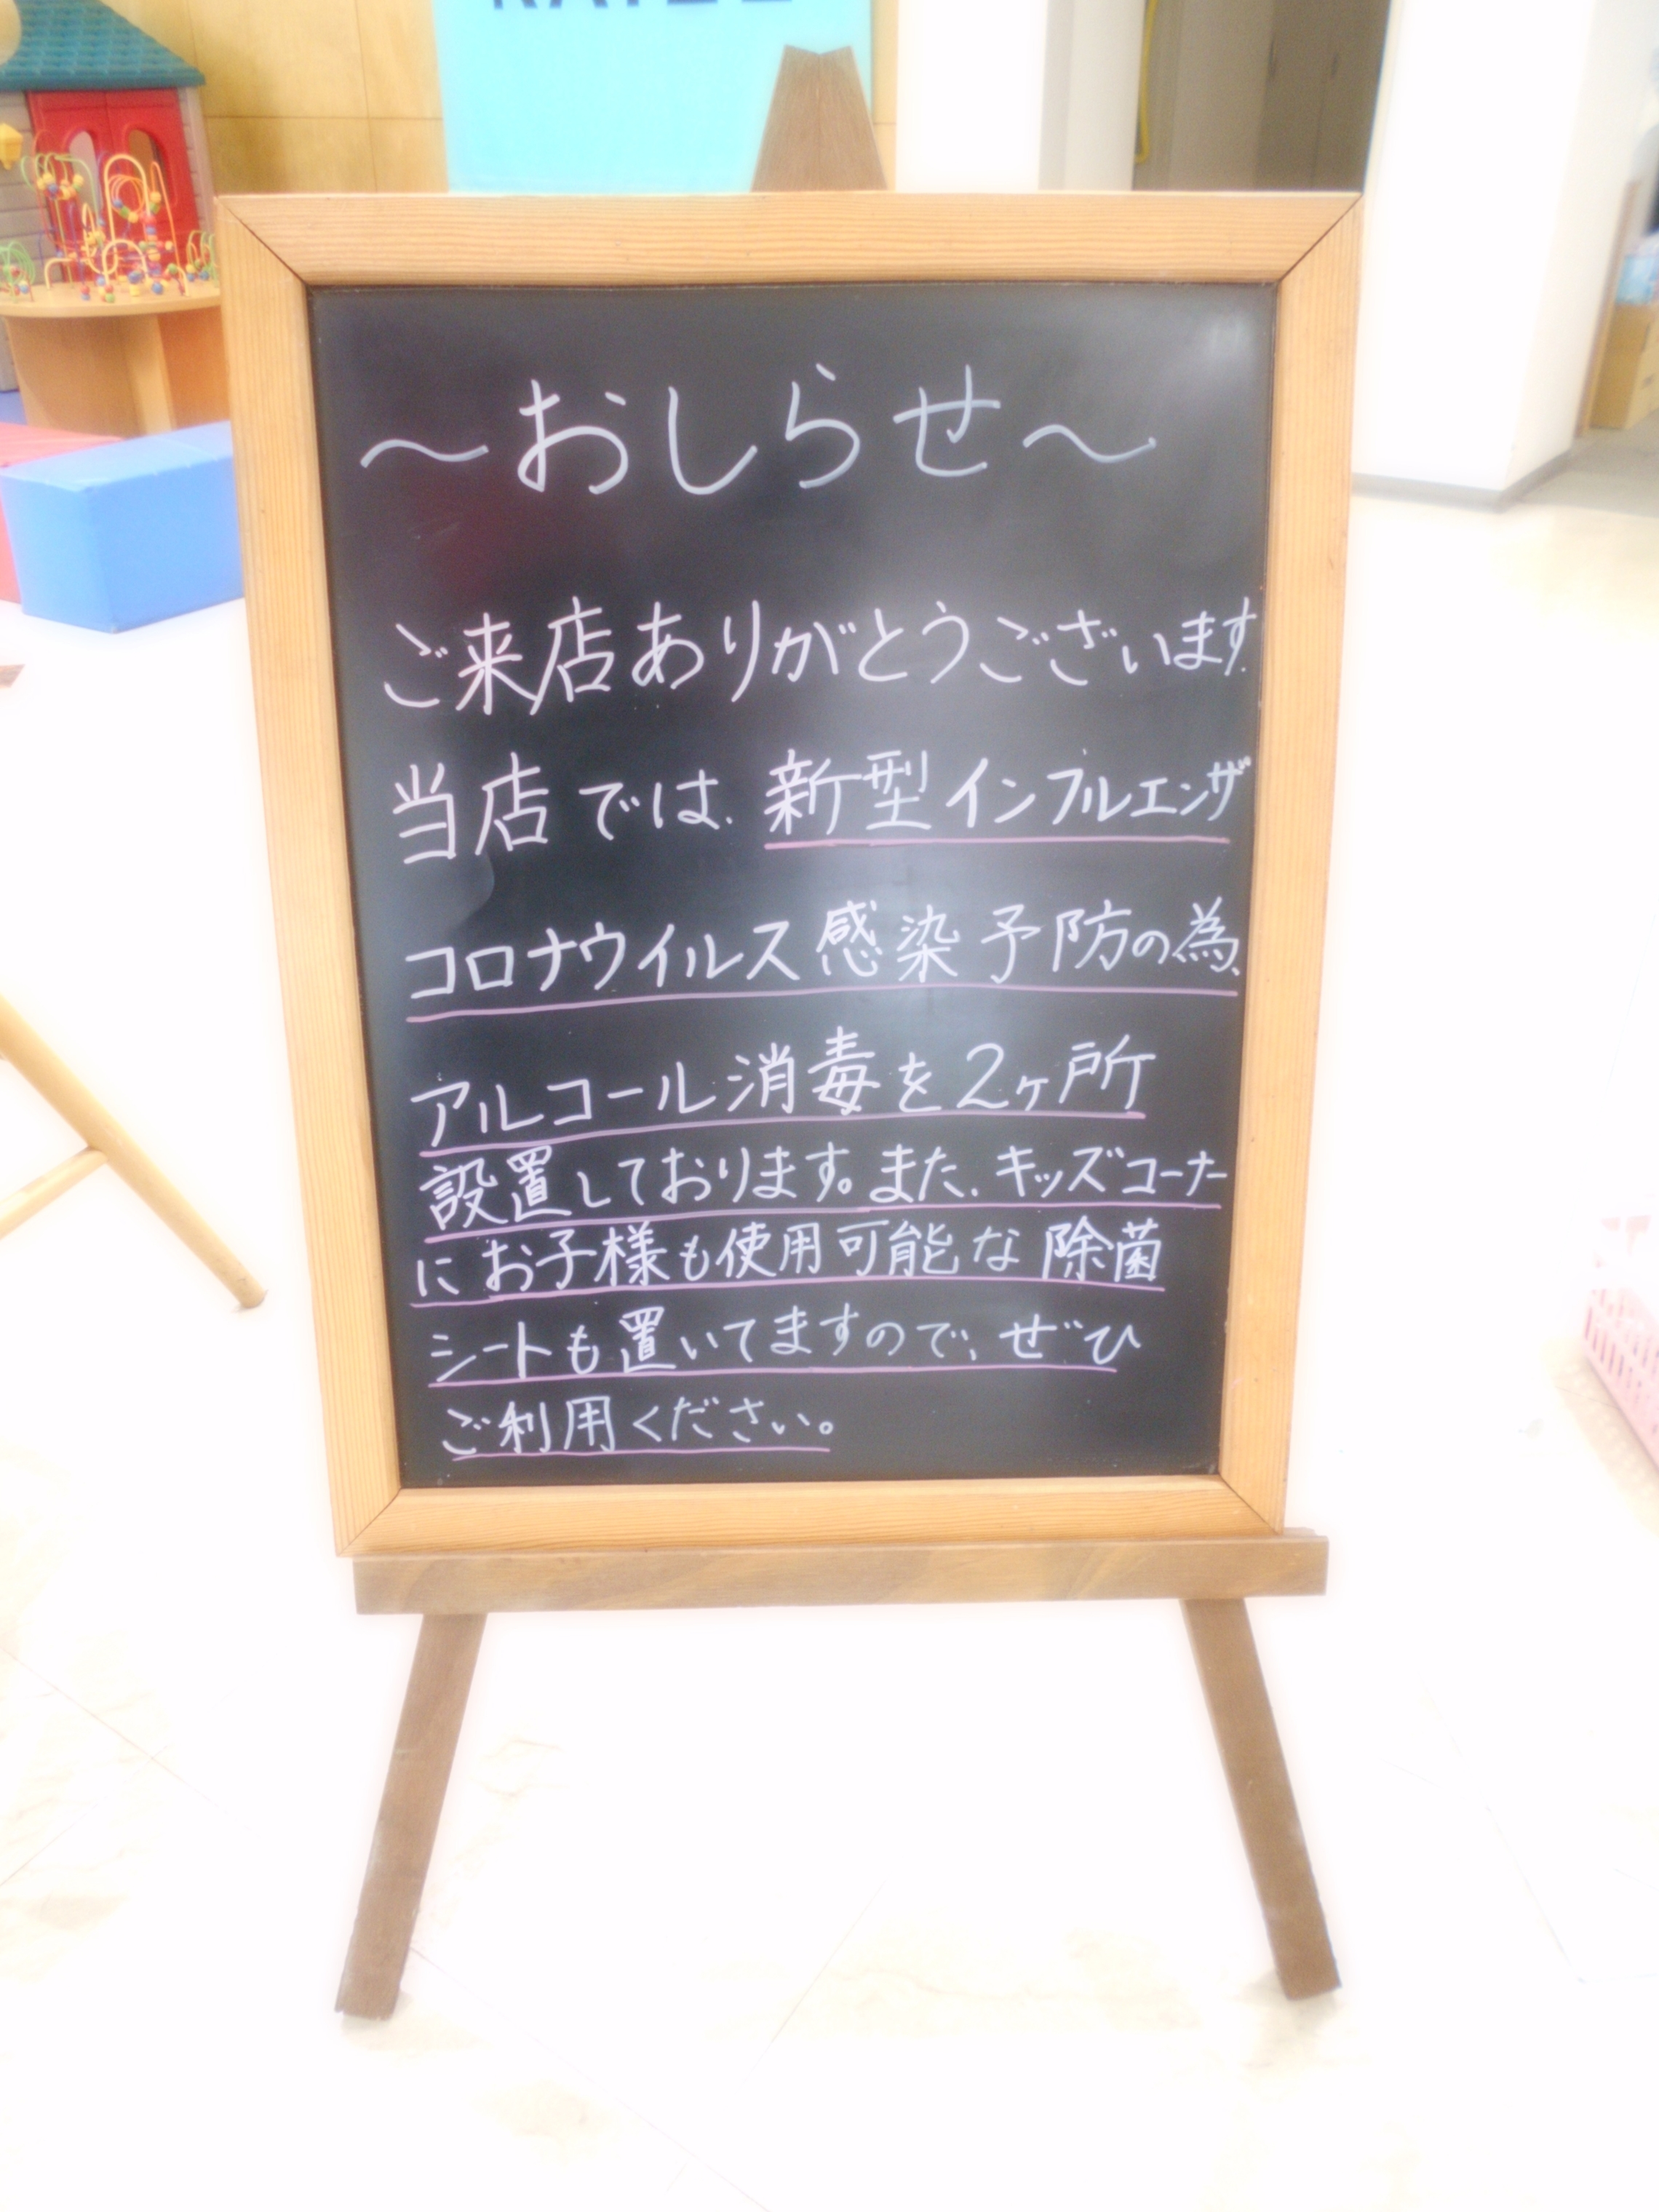 ～おしらせ～
ご来店ありがとうございます
当店では、新型インフルエンザ
コロナウイルス感染予防の為、
アルコール消毒を2ヶ所
設置しております。また、キッズコーナー
にお子様も使用可能な除菌
シートも置いてますので、ぜひ
ご利用ください。